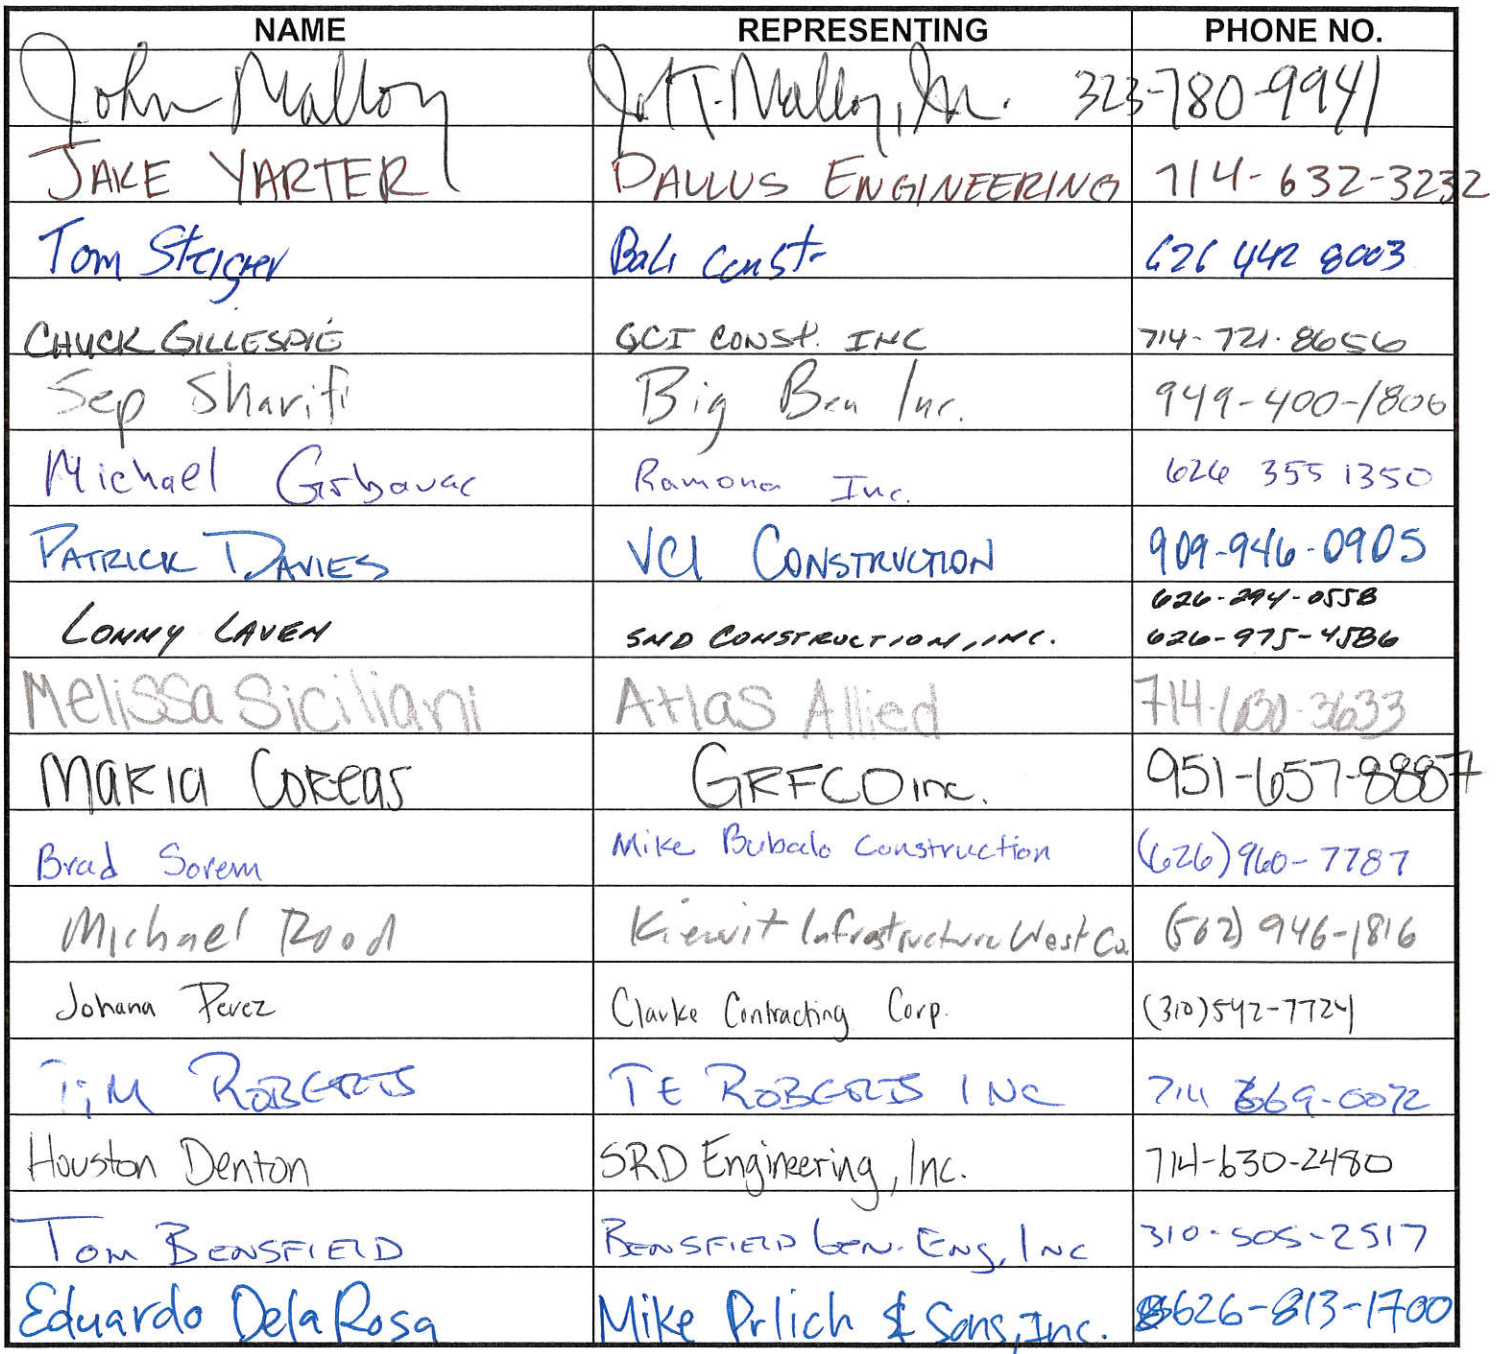 NAME REPRESENTING PHONE NO.
John Malloy J.F.T. Malloy, Inc. 323-780-9941
JAKE YARTER PAULUS ENGINEERING 714-632-3232
Tom Steiger Bali Const. 626 442 8003
CHUCK GILLESPIE GCI CONST. INC 714-721-8656
Sep Sharifi Big Ben Inc. 949-400-1806
Michael Grbavac Ramona Inc. 626 355 1350
PATRICK DAVIES VCI CONSTRUCTION 909-946-0905
626-294-0558
LONNY LAVEN SND CONSTRUCTION, INC. 626-975-4586
Melissa Siciliani Atlas Allied 714-630-3633
MARIA CORREAS GRFCO inc. 951-657-8887
Brad Sorem Mike Bubalo Construction (626) 960-7787
Michael Rood Kiewit Infrastructure West Co. (562) 946-1816
Johana Perez Clarke Contracting Corp. (310) 542-7724
Tim ROBERTS TE ROBERTS INC 714 669-0072
Houston Denton SRD Engineering, Inc. 714-630-2480
TOM BENSFIELD BENSFIELD GEN. ENG, INC 310-505-2517
Eduardo Dela Rosa Mike Prlich & Sons, Inc. 626-813-1700